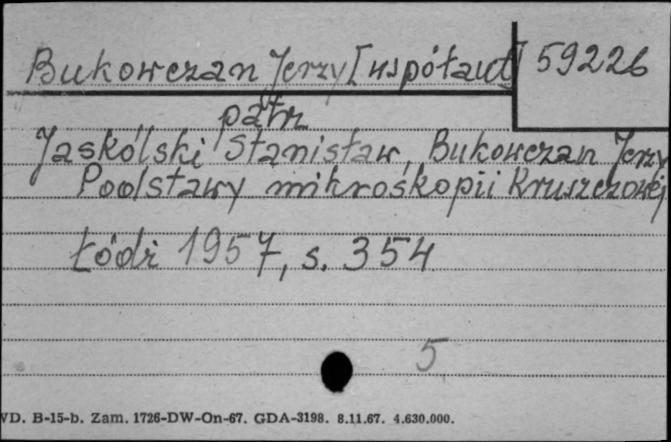 Bukowczan Jerzy [współaut]
59226
patrz
Jaskólski Stanisław, Bukowczan Jerzy
Podstawy mikroskopii kruszczowej
Łódź 1957, s. 354
5
VD. B-15-b. Zam. 1726-DW-On-67. GDA-3198. 8.11.67. 4.630.000.